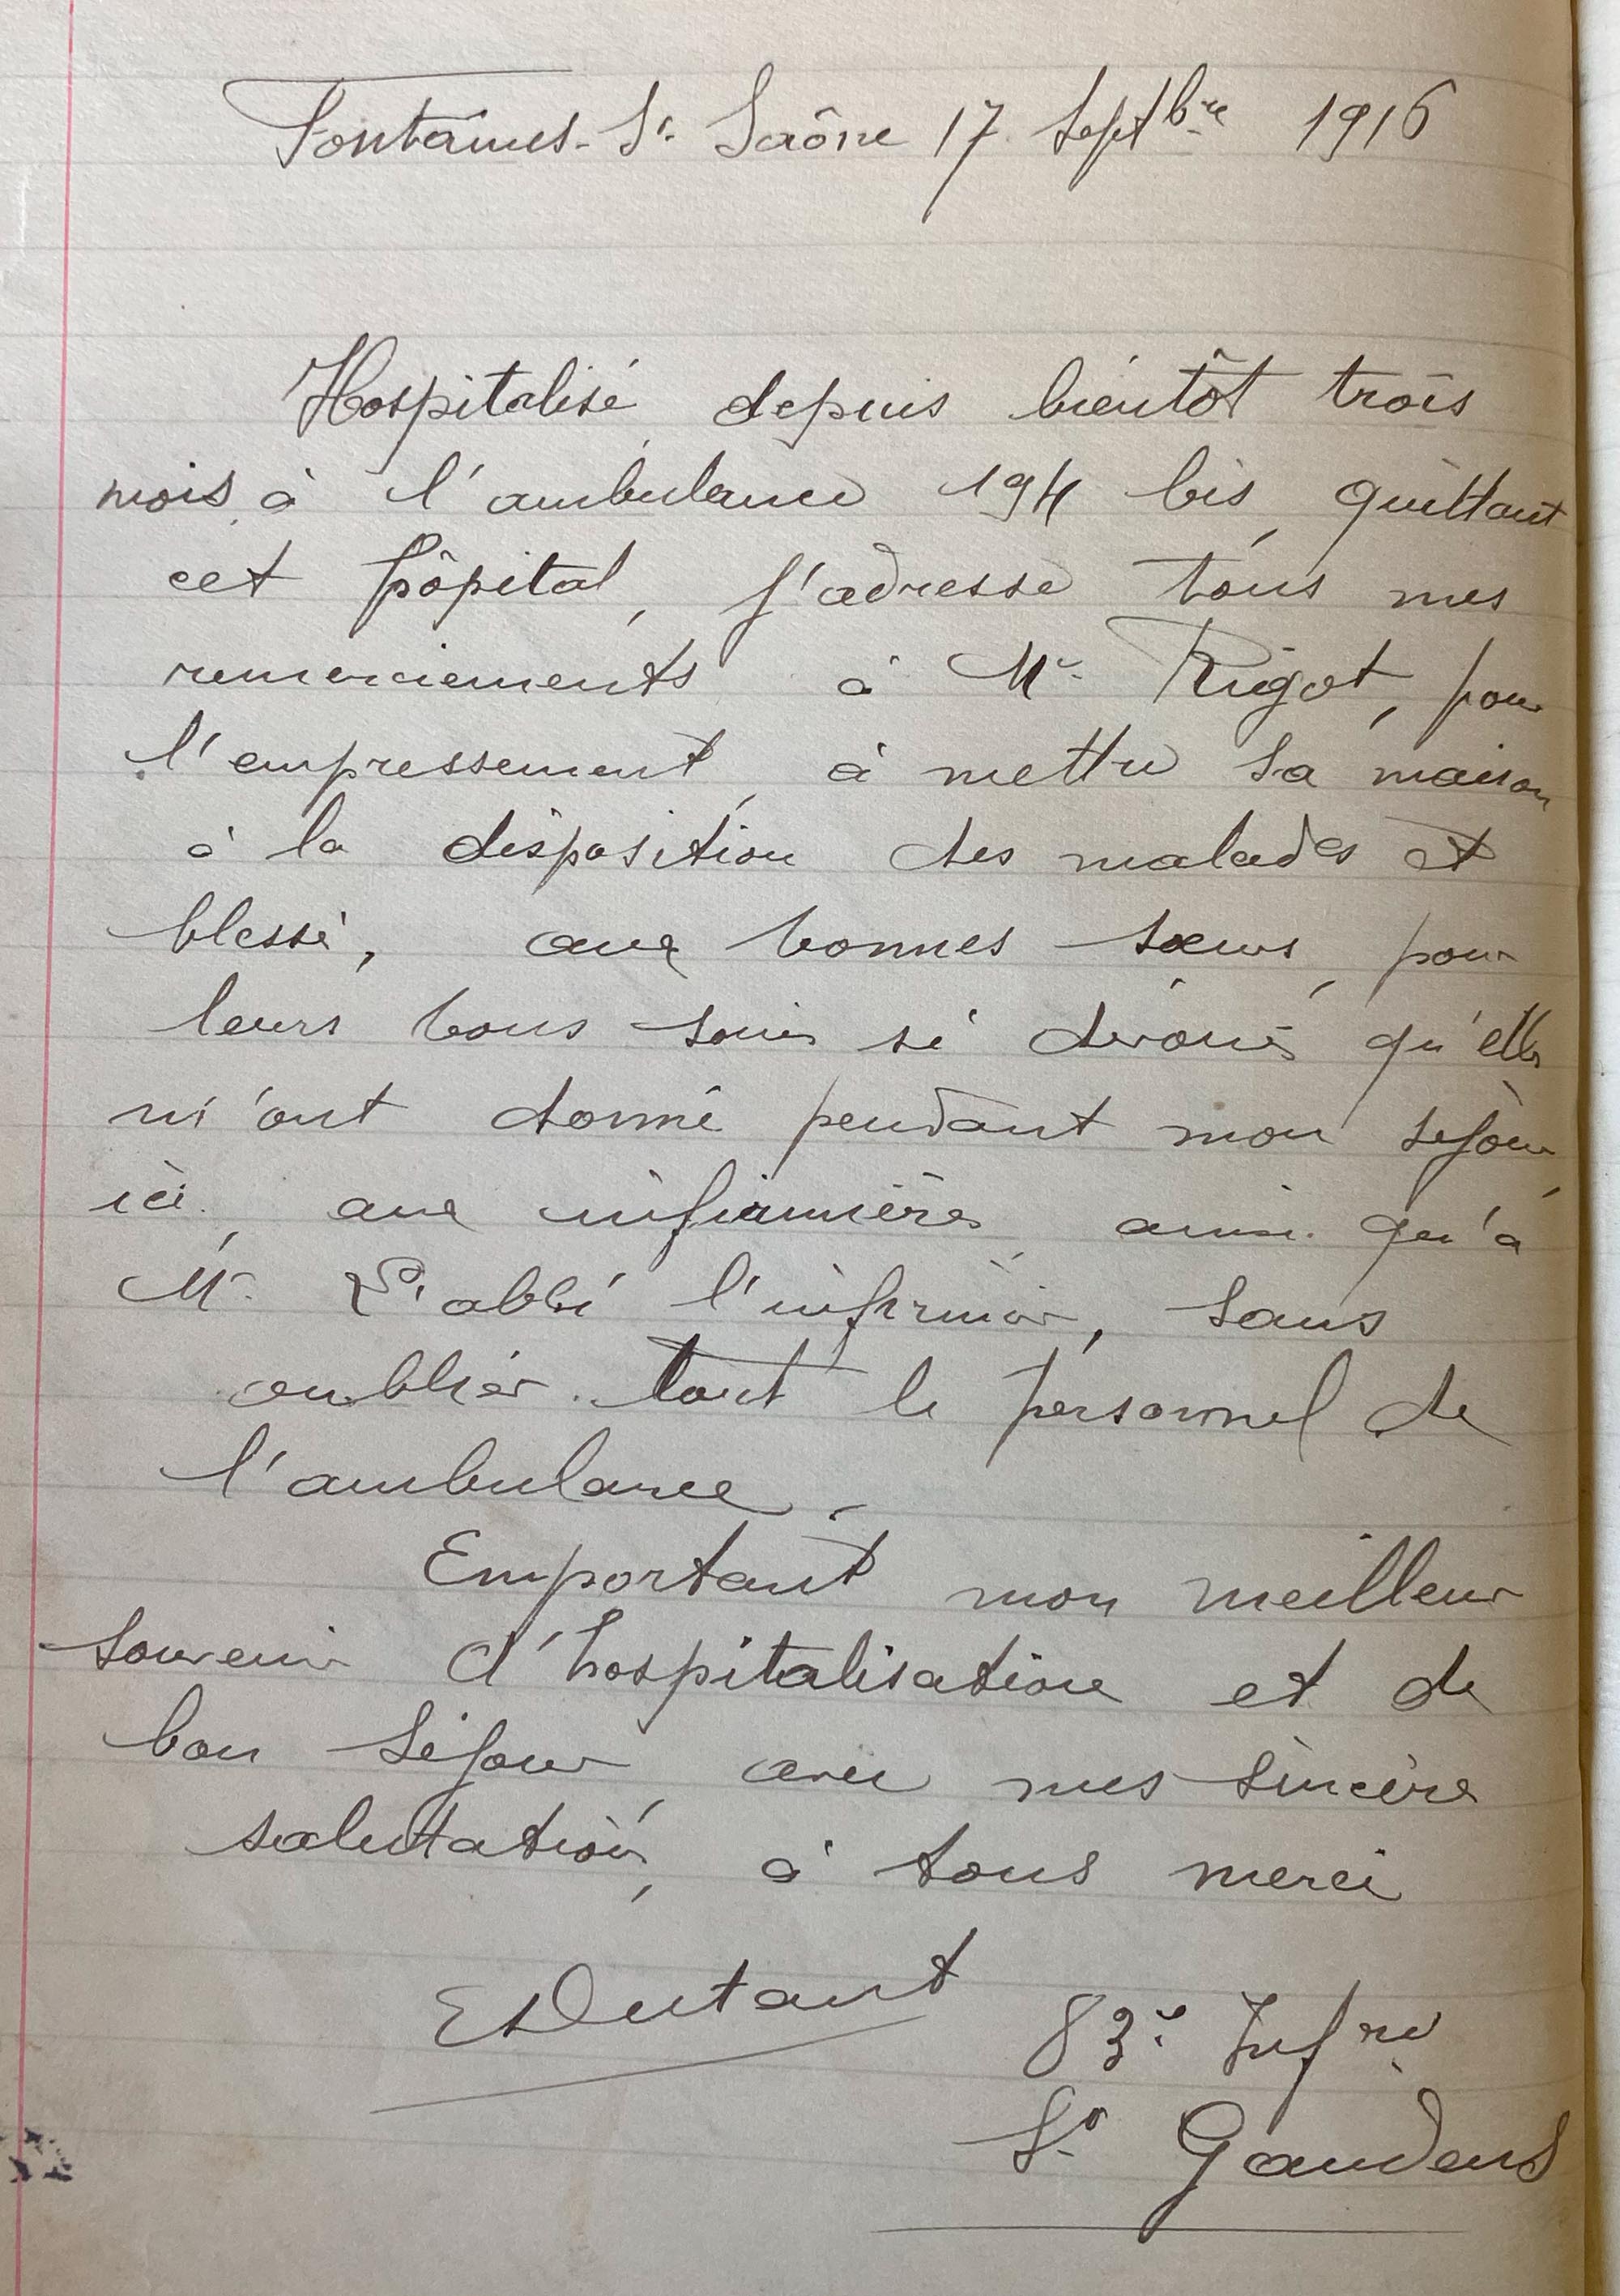 Fontaines-Sr. Saône 17 Septbre 1916
Hospitalisé depuis bientôt trois
mois, à l'ambulance 194 bis, quittant
cet hôpital, j'adresse tous mes
remerciements à Mr. Rigot, pour
l'empressement, à mettre sa maison
à la disposition des malades et
blessé, aux bonnes sœurs, pour
leurs bons soins si dévoués qu'elles
m'ont donné pendant mon séjour,
ici, aux infirmières, ainsi qu'à
Mr. L'abbé l'infirmier, sans
oublier tout le personnel de
l'ambulance.
Emportant mon meilleur
souvenir d'hospitalisation et de
bon séjour, avec mes sincère
salutation, à tous merci
83e Infrie
St. Gaudens